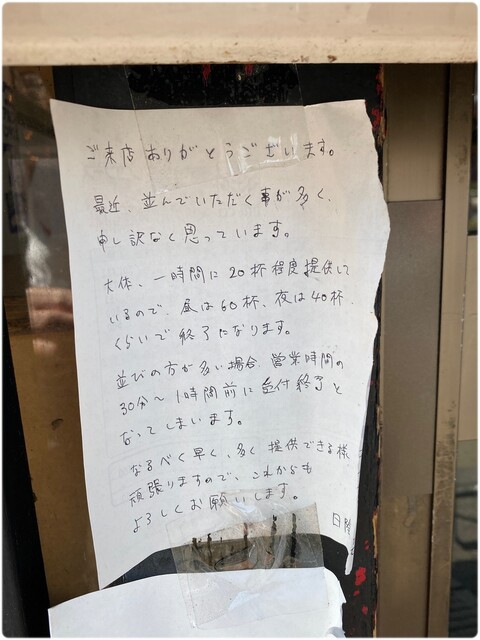 ご来店ありがとうございます。
最近、並んでいただく事が多く、
申し訳なく思っています。
大体、一時間に20杯程度提供して
いるので、昼は60杯、夜は40杯
くらいで終了になります。
並びの方が多い場合、営業時間の
30分~1時間前に受付終了と
なってしまいます。
なるべく早く、多く提供できる様
頑張りますので、これからも
よろしくお願いします。